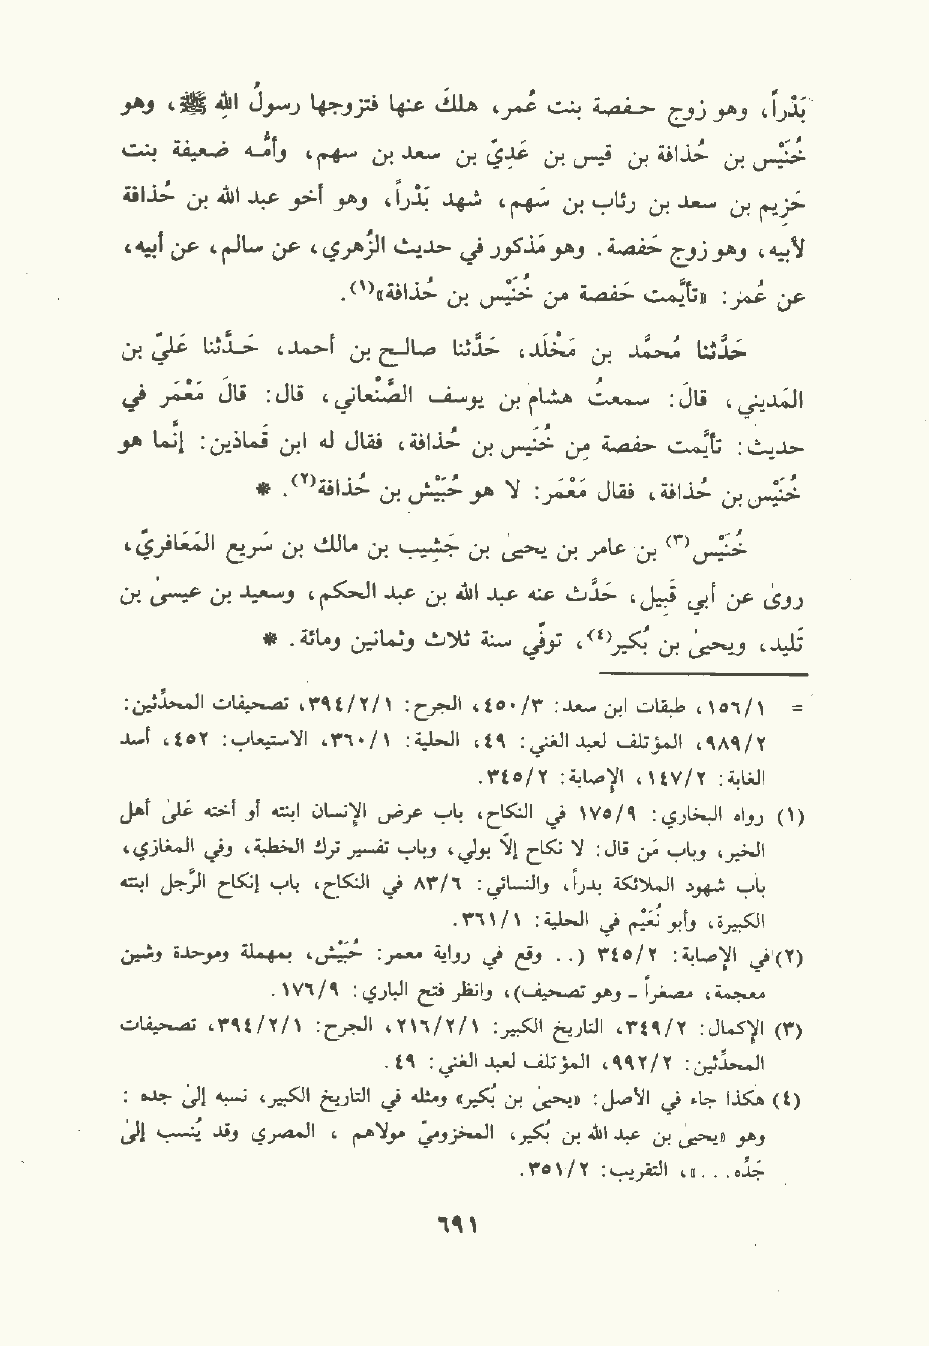 بَدْراً، وهو زوج حـفـصة بنت عُمر، هلكَ عنها فتزوجها رسولُ اللهِ ﷺ، وهو
خُنَيْس بن حُذافة بن قيس بن عَدِيّ بن سعد بن سهم، وأمُّـه ضـعيفة بنت
حَزِيم بن سعد بن رئاب بن سَهْم، شهد بَدْراً، وهو أخو عبد الله بن حُذافة
لأبيه، وهو زوج حَفصة. وهو مَذكور في حديث الزُّهري، عن سالم، عن أبيه،
عن عُمَر: «تأيَّمت حَفصة من خُنَيْس بن حُذافة»(١).
حَدَّثنا مُحمَّد بن مَخْلَد، حَدَّثنا صـالـح بن أحمد، حَـدَّثنا عَليّ بن
المَديني، قالَ: سمعتُ هشام بن يوسف الصَّنْعاني، قال: قالَ مَعْمَر في
حديث: تأيَّمت حفصة من خُنَيس بن حُذافة، فقال له ابن قَماذين: إنَّما هو
خُنَيْس بن حُذافة، فقال مَعْمَر: لا هو حُبَيْش بن حُذافة(٢). *
خُنَيْس(٣) بن عامر بن يحيىٰ بن جَشِيب بن مالك بن سَريع المَعَافريّ،
روىٰ عن أبي قَبِيل، حَدَّث عنه عبد الله بن عبد الحكم، وسعيد بن عيسىٰ بن
تَليد، ويحيىٰ بن بُكير(٤)، توفِّي سنة ثلاث وثمانين ومائة. *
= ١٥٦/١، طبقات ابن سعد: ٤٥٠/٣، الجرح: ٣٩٤/٢/١، تصحيفات المحدِّثين:
٩٨٩/٢، المؤتلف لعبد الغني: ٤٩، الحلية: ٣٦٠/١، الاستيعاب: ٤٥٢، أسد
الغابة: ١٤٧/٢، الإصابة: ٣٤٥/٢.
(١) رواه البخاري: ١٧٥/٩ في النكاح، باب عرض الإنسان ابنته أو أخته علىٰ أهل
الخير، وباب مَن قال: لا نكاح إلَّا بولي، وباب تفسير ترك الخطبة، وفي المغازي،
باب شهود الملائكة بدراً، والنسائي: ٨٣/٦ في النكاح، باب إنكاح الرَّجل ابنته
الكبيرة، وأبو نُعَيْم في الحلية: ٣٦١/١.
(٢) في الإصابة: ٣٤٥/٢ (.. ووقع في رواية معمر: حُبَيْش، بمهملة وموحدة وشين
معجمة، مصغراً - وهو تصحيف)، وانظر فتح الباري: ١٧٦/٩.
(٣) الإكمال: ٣٤٩/٢، التاريخ الكبير: ٢١٦/٢/١، الجرح: ٣٩٤/٢/١، تصحيفات
المحدِّثين: ٩٩٢/٢، المؤتلف لعبد الغني: ٤٩.
(٤) هكذا جاء في الأصل: «يحيىٰ بن بُكير» ومثله في التاريخ الكبير، نسبه إلىٰ جده:
وهو «يحيىٰ بن عبد الله بن بُكير، المخزوميّ مولاهم، المصري وقد يُنسب إلىٰ
جَدِّه...»، التقريب: ٣٥١/٢.
٦٩١